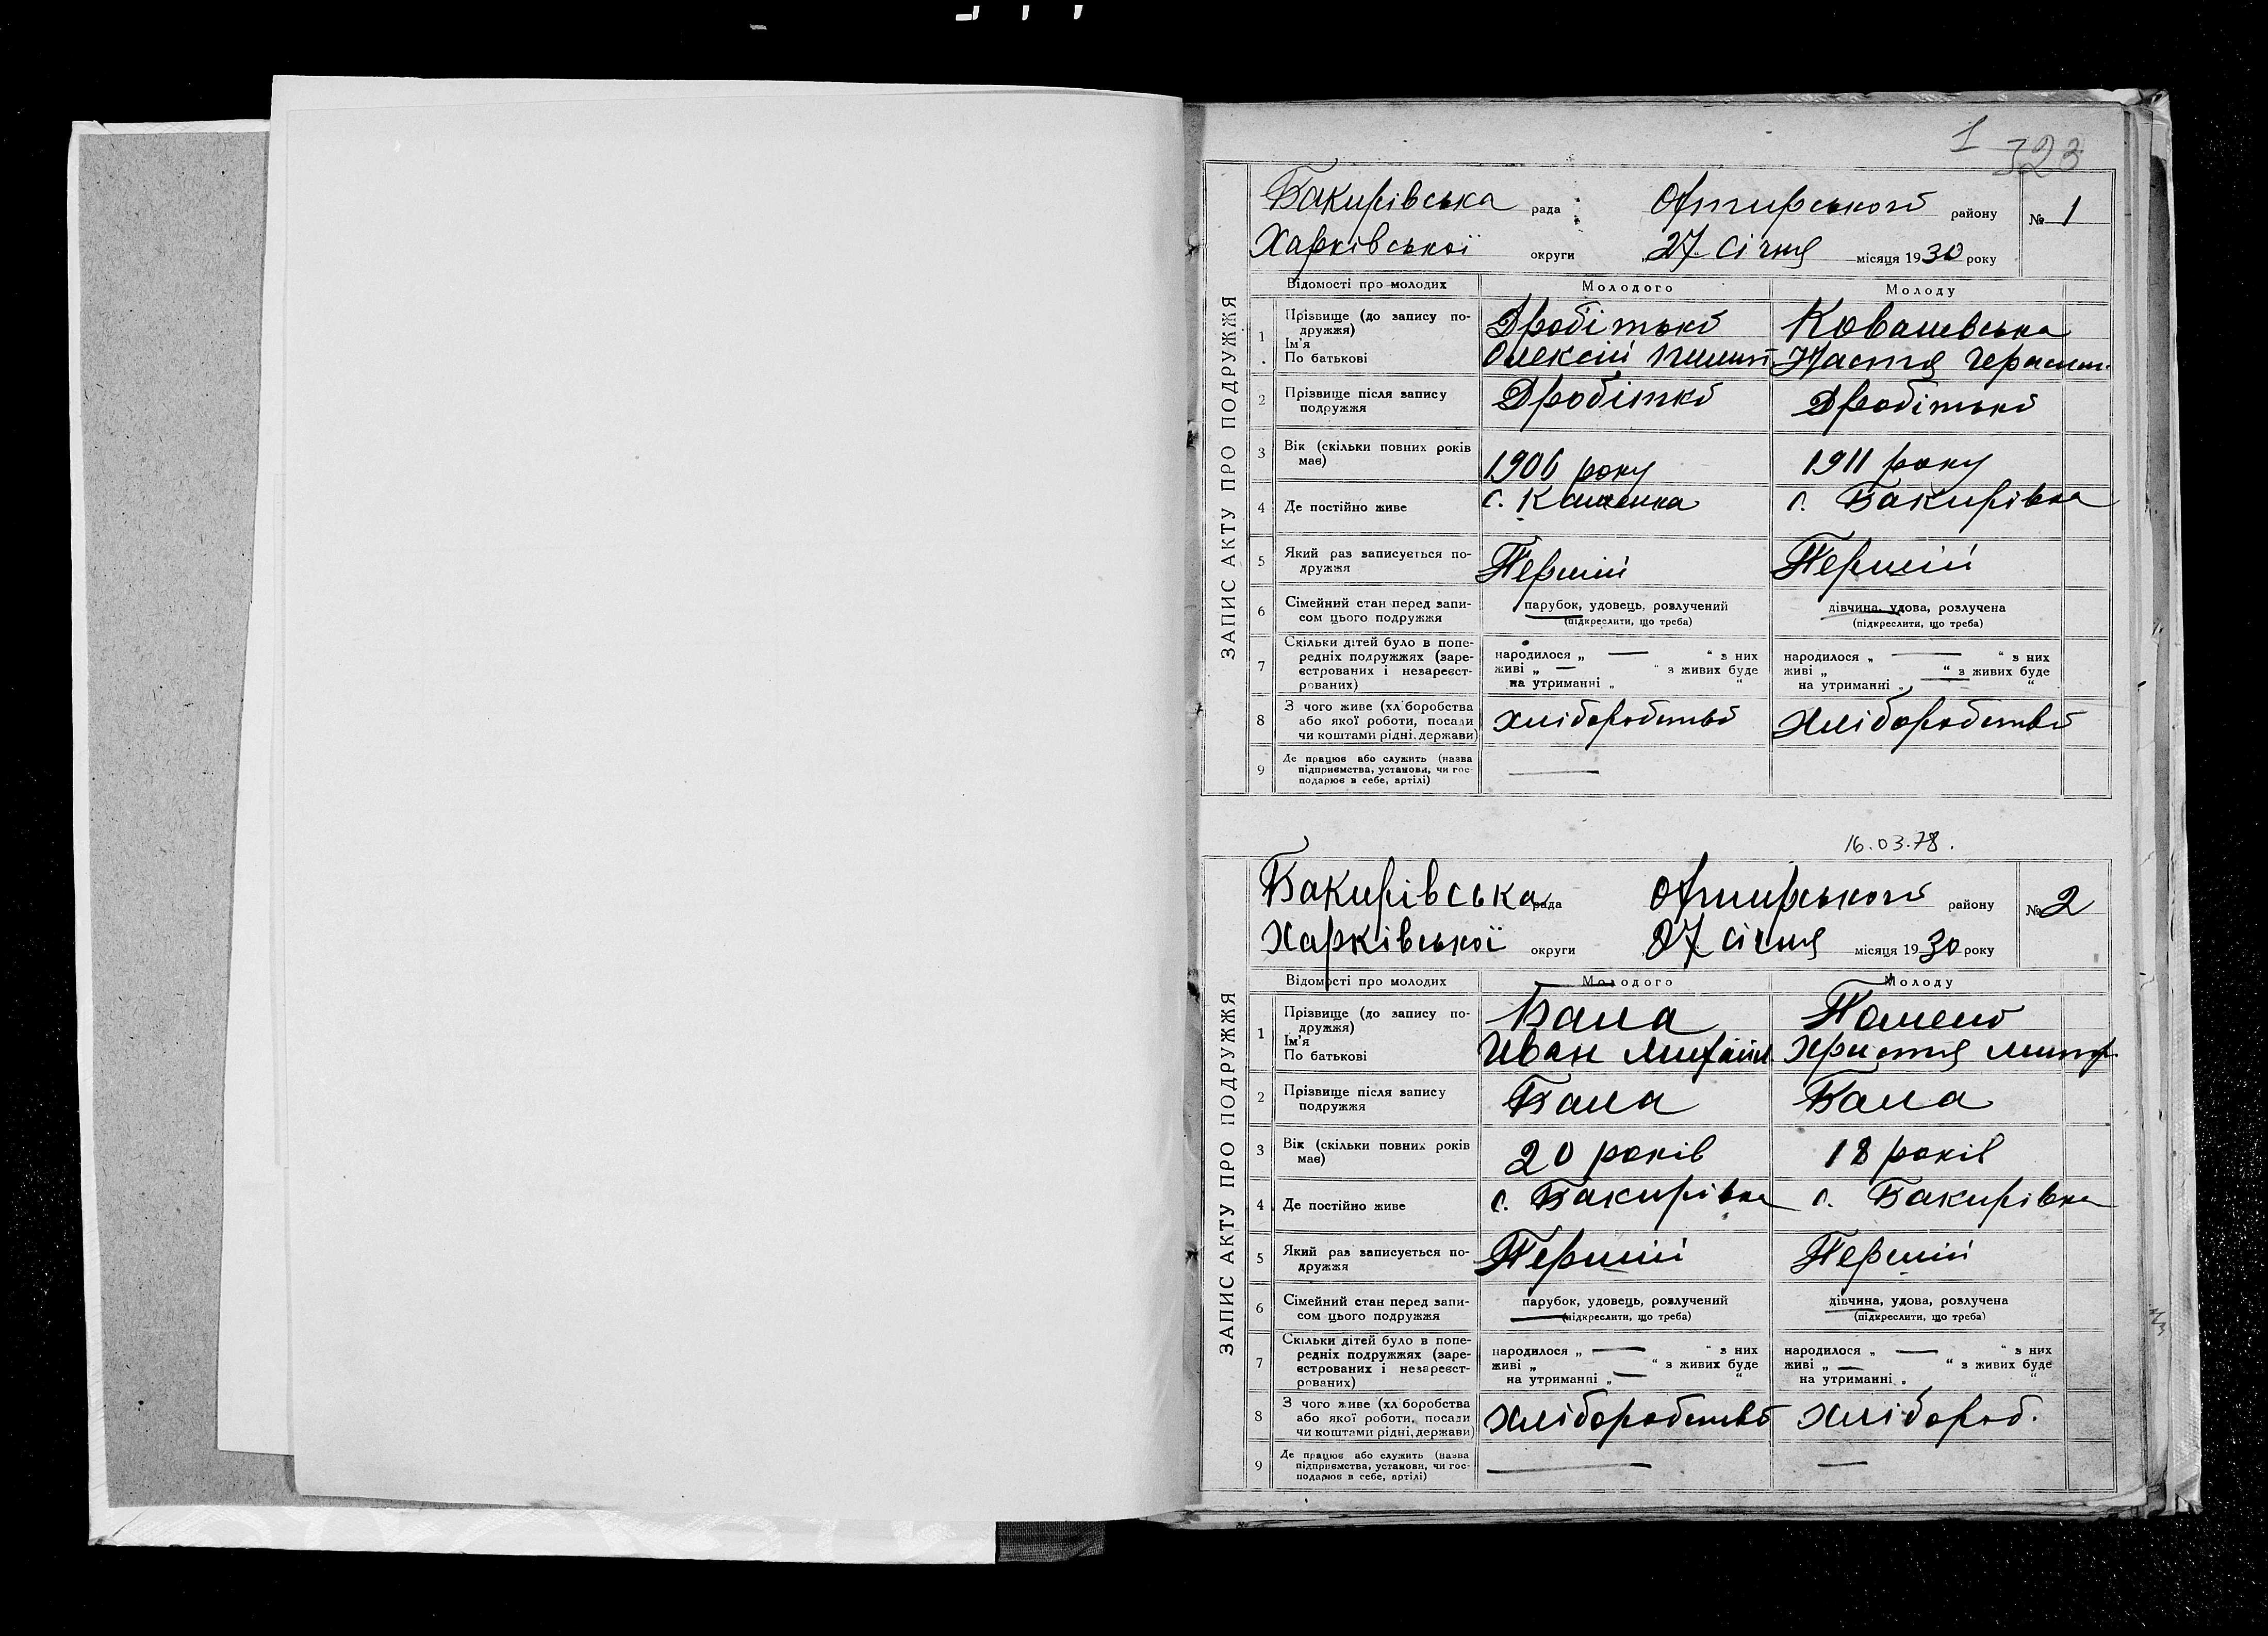 1 323
Бакирівська рада Охтирського району № 1
Харківської округи „27 січня місяця 1930 року
ЗАПИС АКТУ ПРО ПОДРУЖЖЯ
Відомості про молодих Молодого Молоду
1 Прізвище (до запису по-
дружжя) Дробітько Ковалевська
Ім'я
По батькові Олексій Настя Герасим.
2 Прізвище після запису
подружжя Дробітко Дробітько
3 Вік (скільки повних років
має) 1906 року 1911 року
4 Де постійно живе с. с. Бакирівка
5 Який раз записується по-
дружжя Перший Перший
6 Сімейний стан перед запи-
сом цього подружжя парубок, удовець, розлучений дівчина, удова, розлучена
(підкреслити, що треба) (підкреслити, що треба)
7 Скільки дітей було в попе-
редніх подружжях (заре-
єстрованих і незареєст-
рованих)
народилося „ — “ з них народилося „ — “ з них
живі „ — “ з живих буде живі „ “ з живих буде
на утриманні „ “ на утриманні „ — “
8 З чого живе (хліборобства
або якої роботи, посади
чи коштами рідні, держави) хліборобство Хліборобство
9 Де працює або служить (назва
підприємства, установи, чи гос-
подарює в себе, артілі) —
16.03.78.
Бакирівська рада Охтирського району № 2
Харківської округи „27 січня місяця 1930 року
ЗАПИС АКТУ ПРО ПОДРУЖЖЯ
Відомості про молодих Молодого Молоду
1 Прізвище (до запису по-
дружжя) Бала
Ім'я
По батькові Иван Михайл. Христя Митр.
2 Прізвище після запису
подружжя Бала Бала
3 Вік (скільки повних років
має) 20 років 18 років
4 Де постійно живе с. Бакирівка с. Бакирівка
5 Який раз записується по-
дружжя Перший Перший
6 Сімейний стан перед запи-
сом цього подружжя парубок, удовець, розлучений дівчина, удова, розлучена
(підкреслити, що треба) (підкреслити, що треба)
7 Скільки дітей було в попе-
редніх подружжях (заре-
єстрованих і незареєст-
рованих)
народилося „ — “ з них народилося „ — “ з них
живі „ “ з живих буде живі „ — “ з живих буде
на утриманні „ — “ на утриманні „ “
8 З чого живе (хліборобства
або якої роботи, посади
чи коштами рідні, держави) Хліборобство Хлібороб.
9 Де працює або служить (назва
підприємства, установи, чи гос-
подарює в себе, артілі) — —